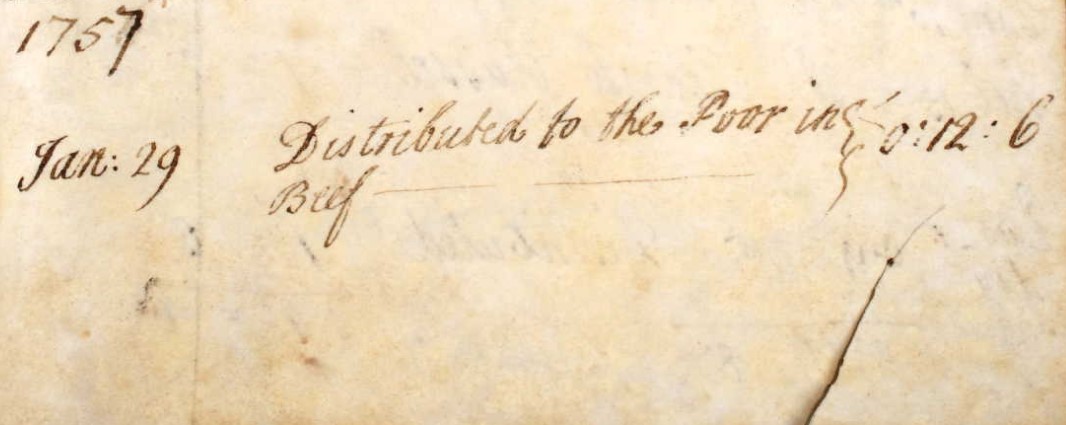 1757
Jan: 29 Distributed to the Poor in } 0:12:6
Beef